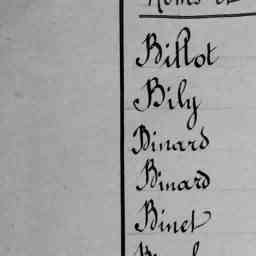 Noms
Billot
Bily
Binard
Binard
Binet